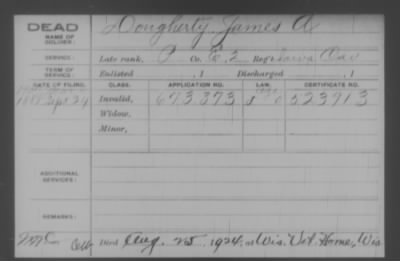 DEAD
NAME OF SOLDIER:
Dougherty James A
SERVICE:
Late rank, P Co. 2 Reg't Iowa Cav
TERM OF SERVICE:
Enlisted , 1 Discharged , 1
DATE OF FILING. CLASS. APPLICATION NO. LAW. CERTIFICATE NO.
Sept 24 Invalid, 673373 523913
Widow,
Minor,
ADDITIONAL SERVICES:
REMARKS:
Died Aug. 25, 1924, at Wis. Vet. Home, Wis